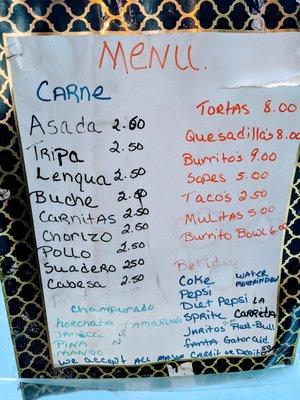 MENU.
CARNE
Asada 2.50
Tripa 2.50
Lengua 2.50
Buche 2.50
CARNITAS 2.50
Chorizo 2.50
Pollo 2.50
Suadero 250
Cabesa 2.50
TORTAS 8.00
Quesadilla's 8.00
Burrito's 9.00
Sopes 5.00
TACO'S 2.50
MULITAS 5.00
Burrito Bowl 6.00
Bebidas
Coke WATER
Pepsi MOUNTAINDEW
Diet Pepsi LA
Sprite CARRETA
Jaritos Red-Bull
fanta Gatoraid
champurado
horchata TAMARINDO
JAMAICA
PINA
MANGO
We accept All Major Credit or Debit